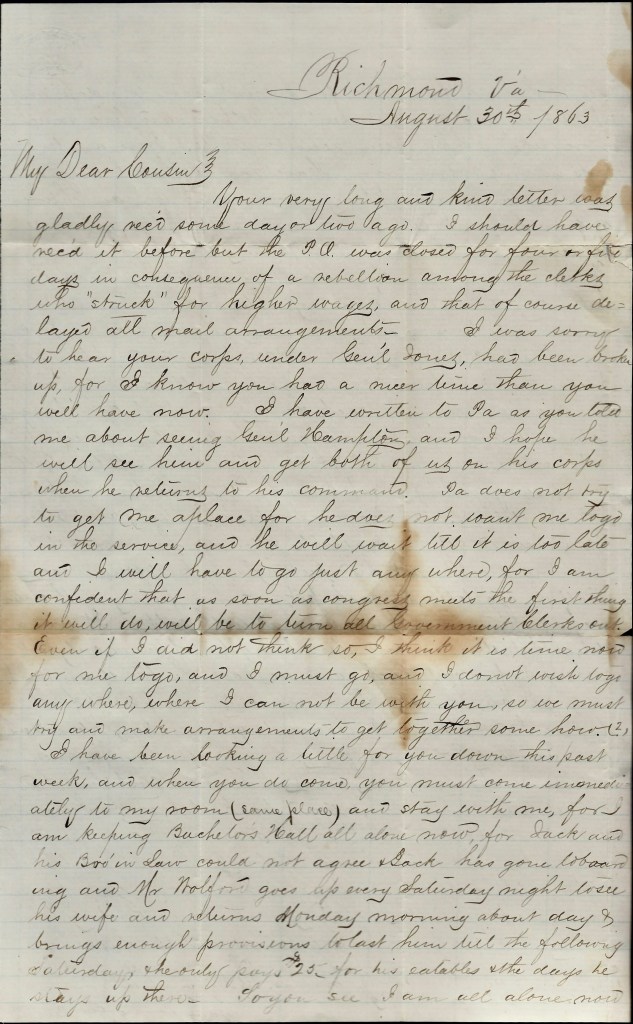 Richmond Va
August 30th 1863
My Dear Cousin
Your very long and kind letter was
gladly rec'd some day or two ago. I should have
rec'd it before but the P.O. was closed for four or five
days in consequence of a rebellion among the clerks
who "struck" for higher wages, and that of course de=
layed all mail arrangements I was sorry
to hear your corps, under Gen'l Jones, had been broken
up, for I know you had a nicer time than you
will have now. I have written to Pa as you told
me about seeing Gen'l Hampton, and I hope he
will see him and get both of us on his corps
when he returns to his command. Pa does not try
to get me a place for he does not want me to go
in the service, and he will wait till it is too late
and I will have to go just any where, for I am
confident that as soon as congress meets the first thing
it will do, will be to turn all Government Clerks out.
Even if I did not think so, I think it is time now
for me to go, and I must go, and I do not wish to go
any where, where I can not be with you, so we must
try and make arrangements to get together some how.
I have been looking a little for you down this past
week, and when you do come, you must come immedi-
ately to my room (same place) and stay with me, for I
am keeping Bachelors Hall all alone now, for Jack and
his Bro' in Law could not agree & Jack has gone to board
ing and Mr Wolford goes up every Saturday night to see
his wife and returns Monday morning about day &
brings enough provisions to last him till the following
Saturday, & he only pays $25 for his eatables & the days he
stays up there - So you see I am all alone now